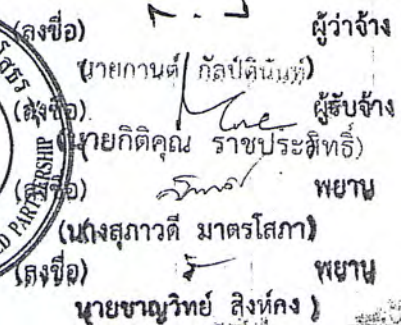 (ลงชื่อ) ผู้ว่าจ้าง
(นายกานต์ กัลป์ตินันท์)
(ลงชื่อ) ผู้รับจ้าง
(นายกิติคุณ ราชประสิทธิ์)
(ลงชื่อ) พยาน
(นางสุภาวดี มาตรโสภา)
(ลงชื่อ) พยาน
นายชาญวิทย์ สิงห์คง )